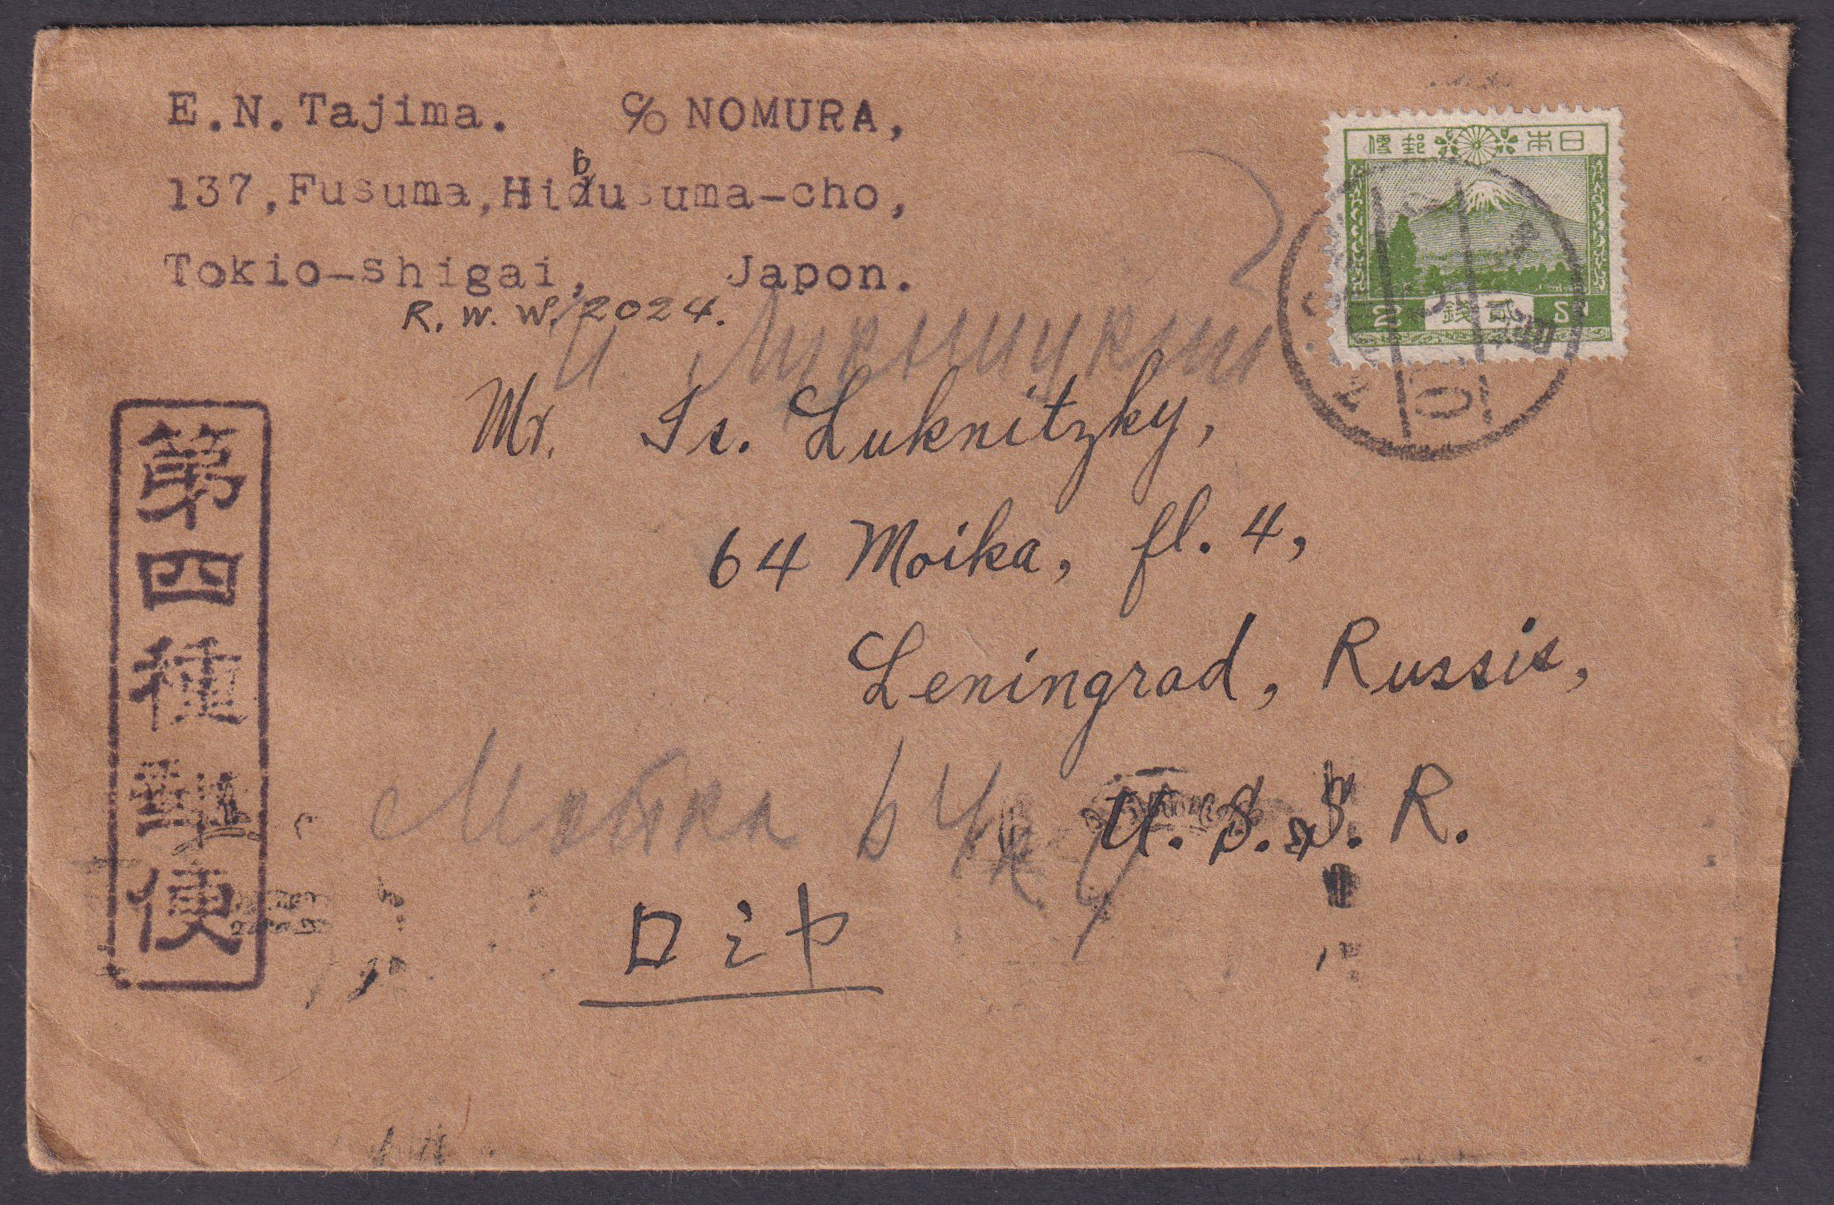 E.N.Tajima. c/o NOMURA,
137,Fusuma,Hibusuma-cho,
Tokio-Shigai, Japon.
R. W. W. 2024.
日本郵便
2 貳錢 Sⁿ
И. Лукницкий
Mr. Is. Luknitzky,
64 Moika, fl. 4,
Leningrad, Russia,
U. S. S. R.
Мойка 64
ロシヤ
第四種郵便